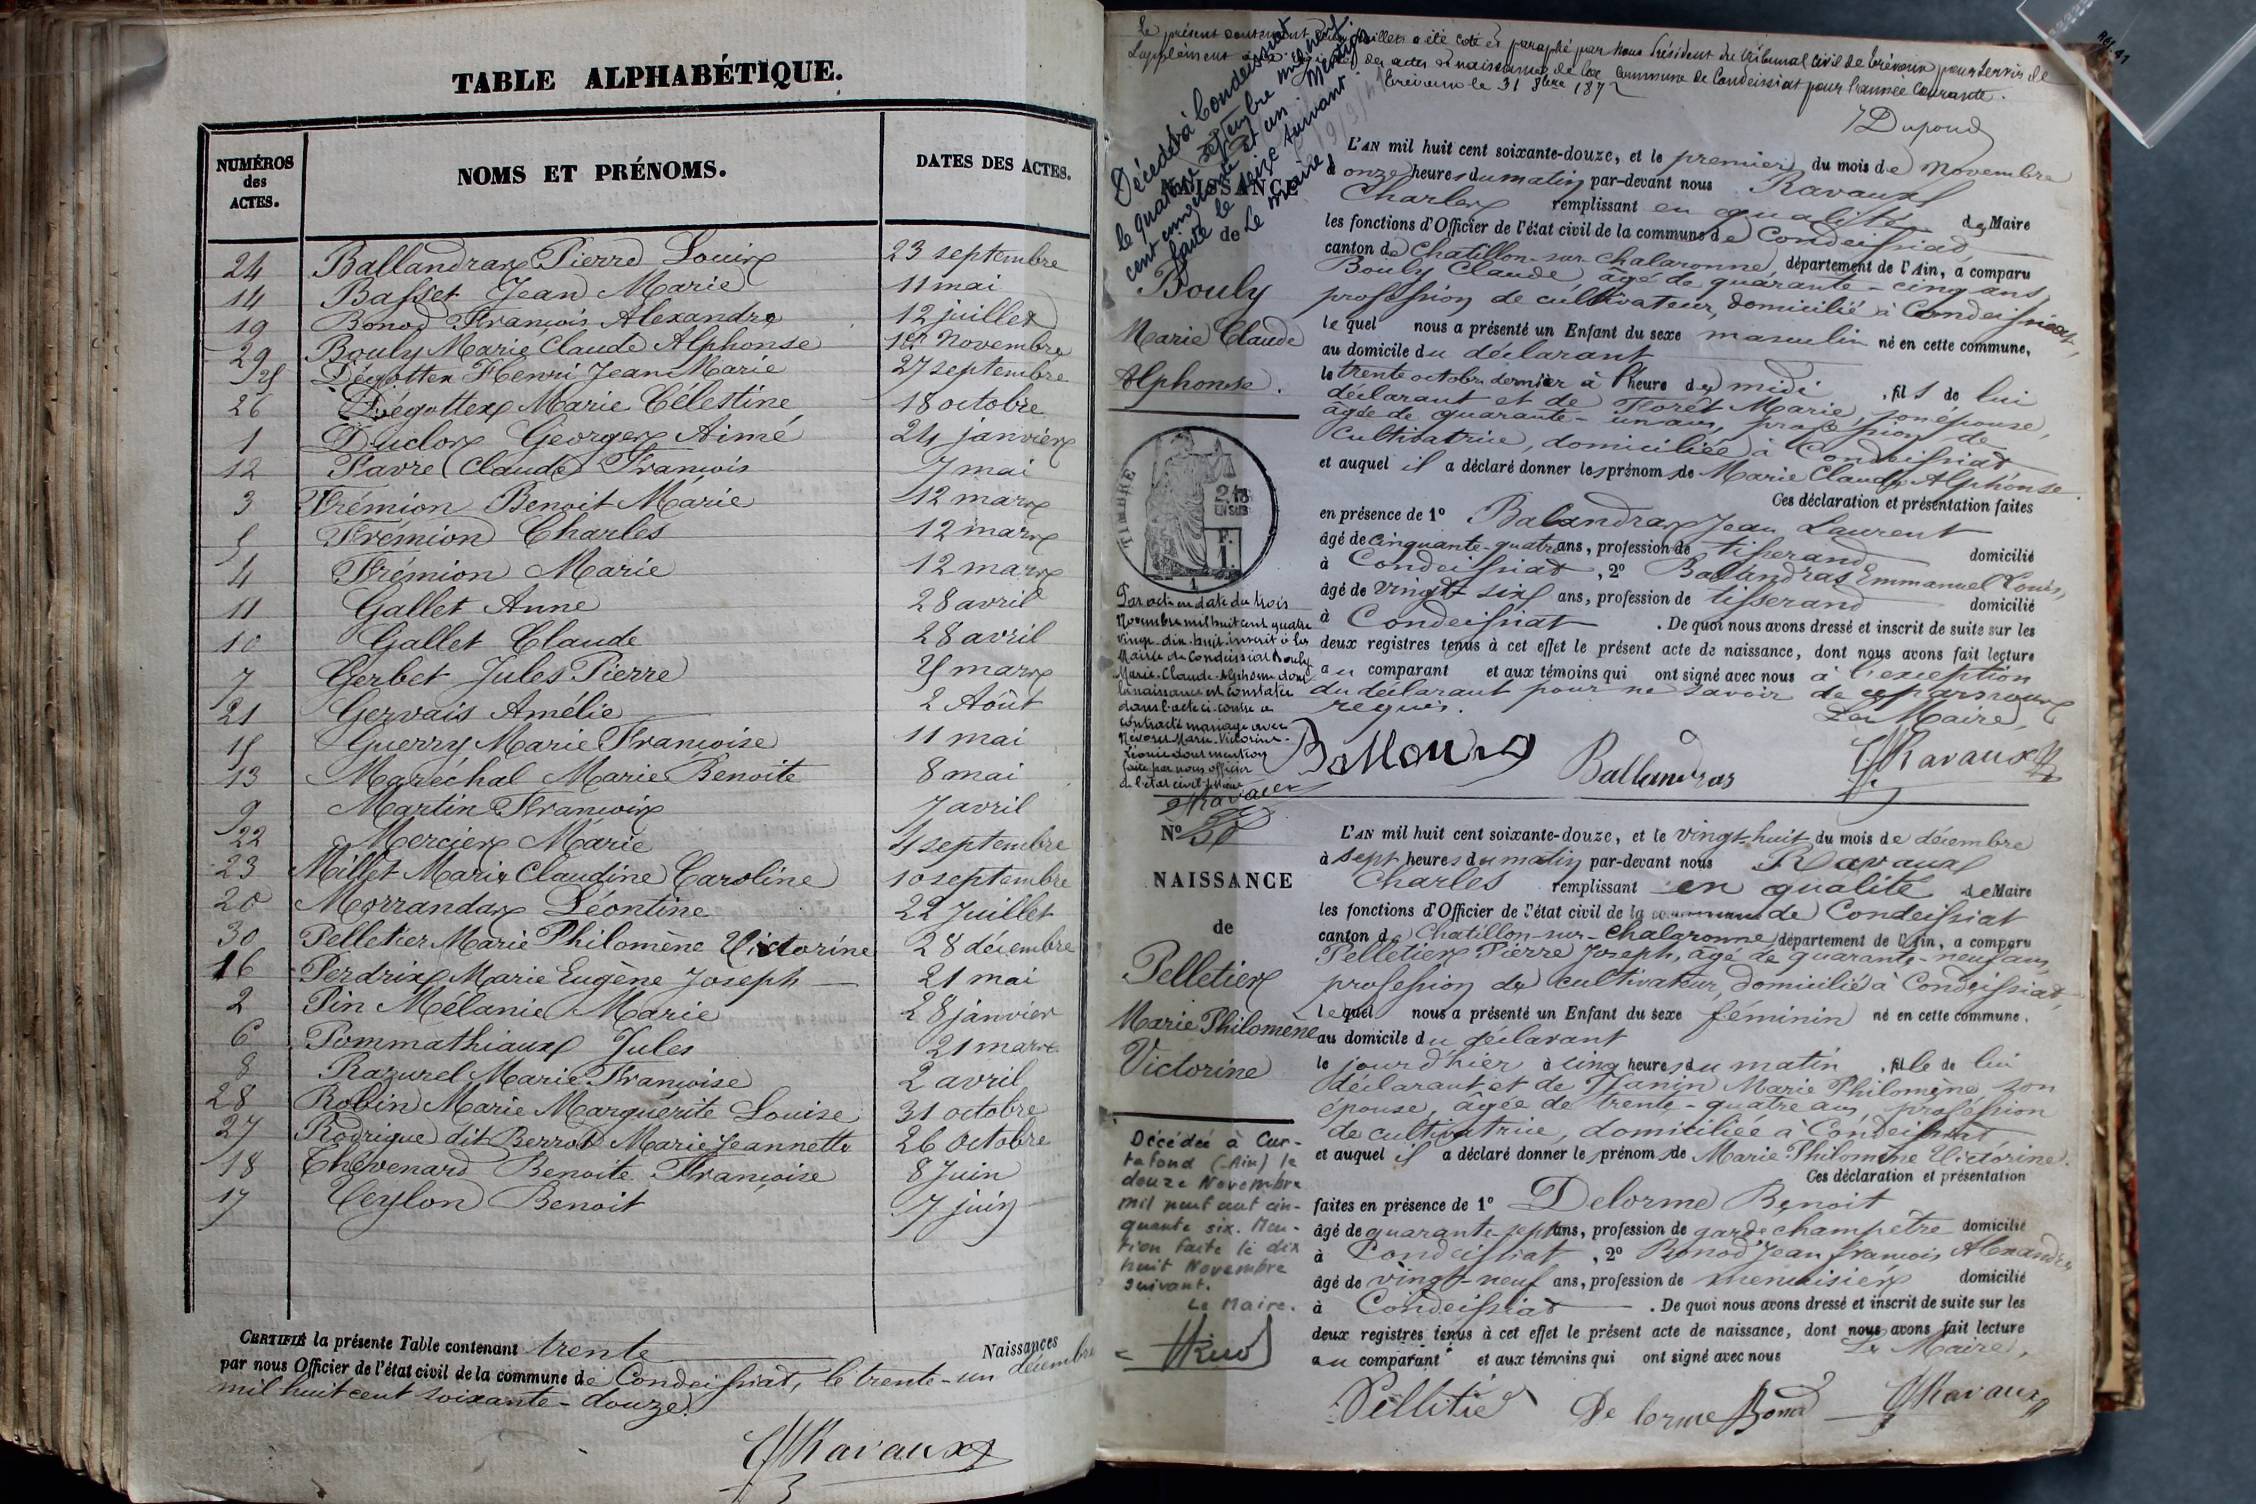 TABLE ALPHABÉTIQUE.
NUMÉROS des ACTES. NOMS ET PRÉNOMS. DATES DES ACTES.
24 Ballandras Pierre Louis 23 septembre
14 Basset Jean Marie 11 mai
19 Bonod François Alexandre 12 juillet
29 Bouly Marie Claude Alphonse 1er Novembre
25 Dégottex Henri Jean Marie 27 septembre
26 Dégottex Marie Célestine 18 octobre
1 Duclos Georges Aimé 24 janvier
12 Favre Claude François 7 mai
3 Frémion Benoit Marie 12 mars
5 Frémion Charles 12 mars
4 Frémion Marie 12 mars
11 Gallet Anne 28 avril
10 Gallet Claude 28 avril
7 Gerbet Jules Pierre mars
21 Gervais Amélie 2 Août
15 Guerry Marie Françoise 11 mai
13 Maréchal Marie Benoite 8 mai
9 Martin François 7 avril
22 Mercier Marie 4 septembre
23 Millet Marie Claudine Caroline 10 septembre
20 Morrandas Léontine 22 Juillet
30 Pelletier Marie Philomène Victorine 28 décembre
16 Perdrix Marie Eugène Joseph 21 mai
2 Pin Mélanie Marie 28 janvier
6 Pommathiaux Jules 21 mars
8 Razurel Marie Françoise 2 avril
28 Robin Marie Marguérite Louise 31 octobre
27 Rodrigue dit Berrod Marie Jeannette 26 octobre
18 Thévenard Benoite Françoise 8 Juin
17 Teylon Benoit 7 juin
CERTIFIÉ la présente Table contenant trente Naissances
par nous Officier de l'état civil de la commune de Condeissiat, le trente-un décembre
mil huit cent soixante-douze.
Ravaux
Le présent feuillet a été coté et paraphé par nous Président du tribunal civil de Trévoux pour servir de
Supplément des actes de naissances de la commune de Condeissiat pour l'année courante.
Trévoux le 31 8bre 1872
Dupond
Décédé à Condeissiat
le quatorze septembre mil neuf
cent cinquante et un. Mention
faite le seize suivant.
Le Maire
NAISSANCE
de
Bouly
Marie Claude
Alphonse.
L'AN mil huit cent soixante-douze, et le premier du mois de novembre
à onze heures du matin par-devant nous Ravaux
Charles remplissant en qualité de Maire
les fonctions d'Officier de l'état civil de la commune de Condeissiat
canton de Chatillon-sur-Chalaronne, département de l'Ain, a comparu
Bouly Claude âgé de quarante-cinq ans,
profession de cultivateur, domicilié à Condeissiat,
lequel nous a présenté un Enfant du sexe masculin né en cette commune,
au domicile du déclarant
le trente octobre dernier à l'heure de midi, fils de lui
déclarant et de Florêt Marie, son épouse,
âgée de quarante-un ans, profession de
cultivatrice, domiciliée à Condeissiat
et auquel il a déclaré donner les prénom de Marie Claude Alphonse.
Ces déclaration et présentation faites
en présence de 1° Balandras Jean Laurent
âgé de cinquante-quatre ans, profession de tisserand domicilié
à Condeissiat, 2° Balandras Emmanuel Louis,
âgé de vingt-six ans, profession de tisserand domicilié
à Condeissiat. De quoi nous avons dressé et inscrit de suite sur les
deux registres tenus à cet effet le présent acte de naissance, dont nous avons fait lecture
au comparant et aux témoins qui ont signé avec nous à l'exception
du déclarant pour ne savoir de ce par nous
requis.
Le Maire,
Ballandras
Ravaux
TIMBRE
Par acte en date du trois
Novembre mil huit cent quatre
vingt-dix-huit inscrit à la
Mairie de Condeissiat Bouly
Marie-Claude-Alphonse dont
la naissance est constatée
dans l'acte ci-contre a
contracté mariage avec
Marie-Victorine-
Léonie dont mention
faite par nous officier
de l'état civil
Ravaux
N° 30
NAISSANCE
de
Pelletier
Marie Philomène
Victorine
L'AN mil huit cent soixante-douze, et le vingt-huit du mois de décembre
à sept heures du matin par-devant nous Ravaux
Charles remplissant en qualité de Maire
les fonctions d'Officier de l'état civil de la commune de Condeissiat
canton de Chatillon-sur-Chalaronne, département de l'Ain, a comparu
Pelletier Pierre Joseph, âgé de quarante-neuf ans,
profession de cultivateur, domicilié à Condeissiat
lequel nous a présenté un Enfant du sexe féminin né en cette commune.
au domicile du déclarant
le jour d'hier à cinq heures du matin, fille de lui
déclarant et de Marie Philomène son
épouse, âgée de trente-quatre ans, profession
de cultivatrice, domiciliée à Condeissiat
et auquel il a déclaré donner les prénom de Marie Philomène Victorine.
Ces déclaration et présentation
faites en présence de 1° Delorme Benoit
âgé de quarante-sept ans, profession de garde champêtre domicilié
à Condeissiat, 2° Bonod Jean François Alexandre
âgé de vingt-neuf ans, profession de menuisier domicilié
à Condeissiat. De quoi nous avons dressé et inscrit de suite sur les
deux registres tenus à cet effet le présent acte de naissance, dont nous avons fait lecture
au comparant et aux témoins qui ont signé avec nous Le Maire,
Pelletier Delorme Bonod Ravaux
Décédée à Cur-
tafond (Ain) le
douze Novembre
mil neuf cent cin-
quante six. Men-
tion faite le dix
huit Novembre
suivant.
Le Maire.